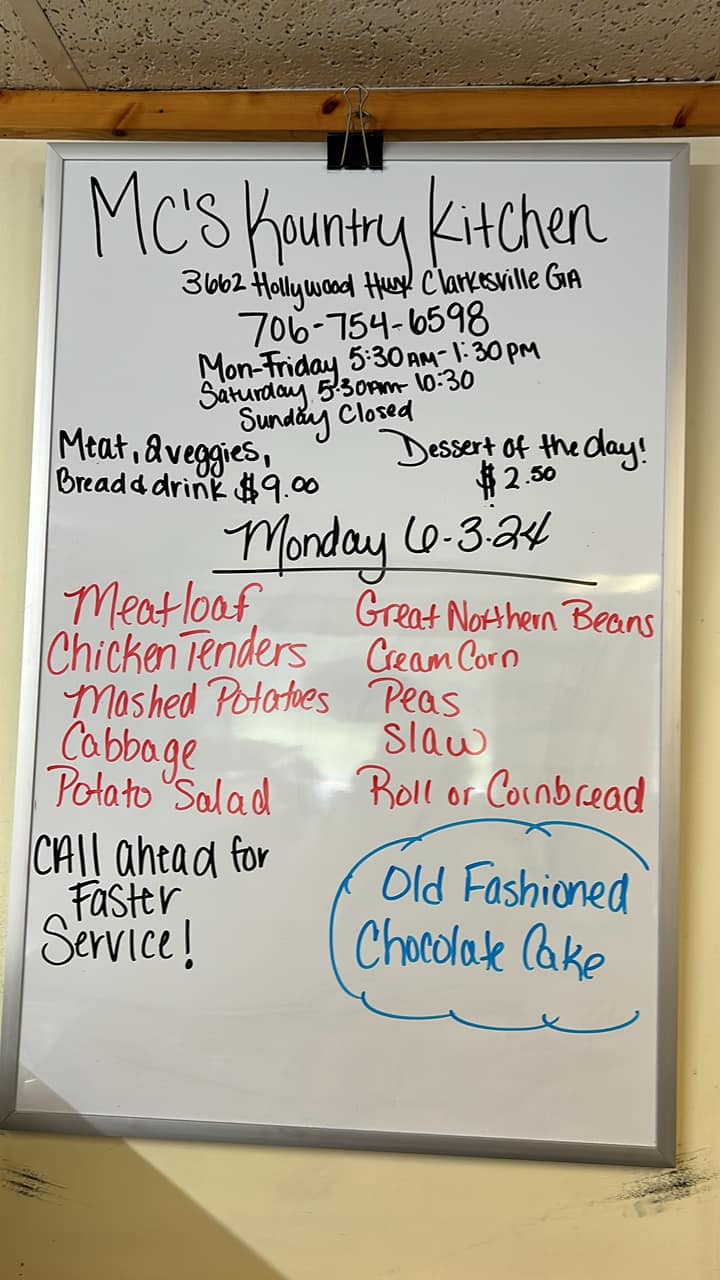 Mc's Kountry Kitchen
3662 Hollywood Hwy Clarkesville GA
706-754-6598
Mon-Friday 5:30 AM-1:30 PM
Saturday 5:30AM- 10:30
Sunday Closed
Meat, 2 veggies,
Bread & drink $9.00
Dessert of the day!
$2.50
Monday 6-3-24
Meatloaf
Chicken Tenders
Mashed Potatoes
Cabbage
Potato Salad
Great Northern Beans
Cream Corn
Peas
Slaw
Roll or Cornbread
Call ahead for
Faster
Service!
Old Fashioned
Chocolate Cake